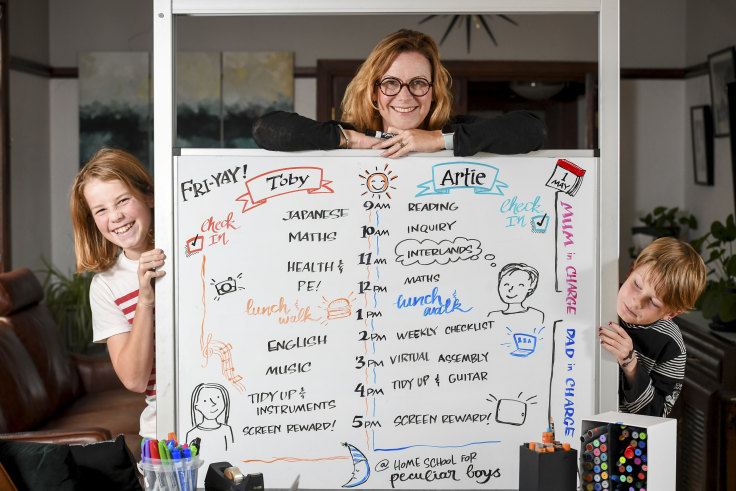 FRI-YAY!
Toby
Artie
1
MAY
check
IN
check
IN
9AM
JAPANESE
READING
10AM
MATHS
INQUIRY
11AM
HEALTH &
PE!
INTERLANDS
12PM
MATHS
lunch &
walk
lunch &
walk
1PM
2PM
ENGLISH
WEEKLY CHECKLIST
3PM
MUSIC
VIRTUAL ASSEMBLY
4PM
TIDY UP &
INSTRUMENTS
TIDY UP & GUITAR
5PM
SCREEN REWARD!
SCREEN REWARD!
MUM in CHARGE
DAD in CHARGE
@ HOME SCHOOL FOR
peculiar boys